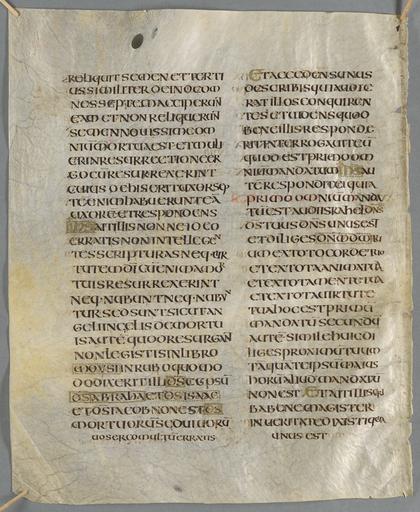 RELIQUIT SEMEN ET TERTI
US SIMILITER
NES SEPTEM ACCIPERUN
EAM ET NON RELIQUERUN
SEMEN NOUISSIM
MORTUA EST ET MULI
ER IN RESURRECTIONE ER
GO CUM RESURREXERINT
CUIUS DE HIS ERIT UXOR SEP
TE ENIM HABUERUNT EA
UXORE ET RESPONDENS
IHS AIT ILLIS NON
ERRATIS NON INTELLEGEN
TES SCRIPTURAS NEQ UIR
TUTEM DI CUM ENIM A MOR
TUIS RESURREXERINT
NEQ NUBUNT NEQ NUBUN
TUR SED SUNT SICUT AN
GELI IN CAELIS DE MORTU
IS AUTE QUOD RESURGAN
NON LEGISTIS IN LIBRO
MOYSI IN RUBO QUOMO
DO DIXERIT ILLI DS EGO SU
DS ABRAHA ET DS ISAAC
ET DS IACOB NON EST DS
MORTUORUS QUI UORU
UOS ERGO MULTU ERRATIS
ET ACCEDENS UNUS
DE SCRIBIS QUI AUDIE
RAT ILLOS CONQUIREN
TES ET UIDENS QUOD
BENE ILLIS RESPONDE
RIT INTERROGAUIT EU
QUOD EST PRIMU OM
NIU MANDATUM IHS AU
TE RESPONDIT EI QUIA
PRIMO OMNIU MANDA
TU EST AUDI ISRAHEL DNS
DS TUUS DNS UNUS EST
ET DILIGES DNM DM TU
UM EX TOTO CORDE TUO
ET EX TOTA ANIMA TUA
ET EX TOTA MENTE TUA
ET EX TOTA UIRTUTE
TUA HOC EST PRIMU
MANDATU SECUNDU
AUTE SIMILE HUIC DI
LIGES PROXIMU TUUM
TAQUA TE IPSU MAIUS
HORU ALIUD MANDATU
NON EST ET AIT ILLI SCRI
BA BENE MAGISTER
IN UERITATE DIXISTI QUIA
UNUS EST